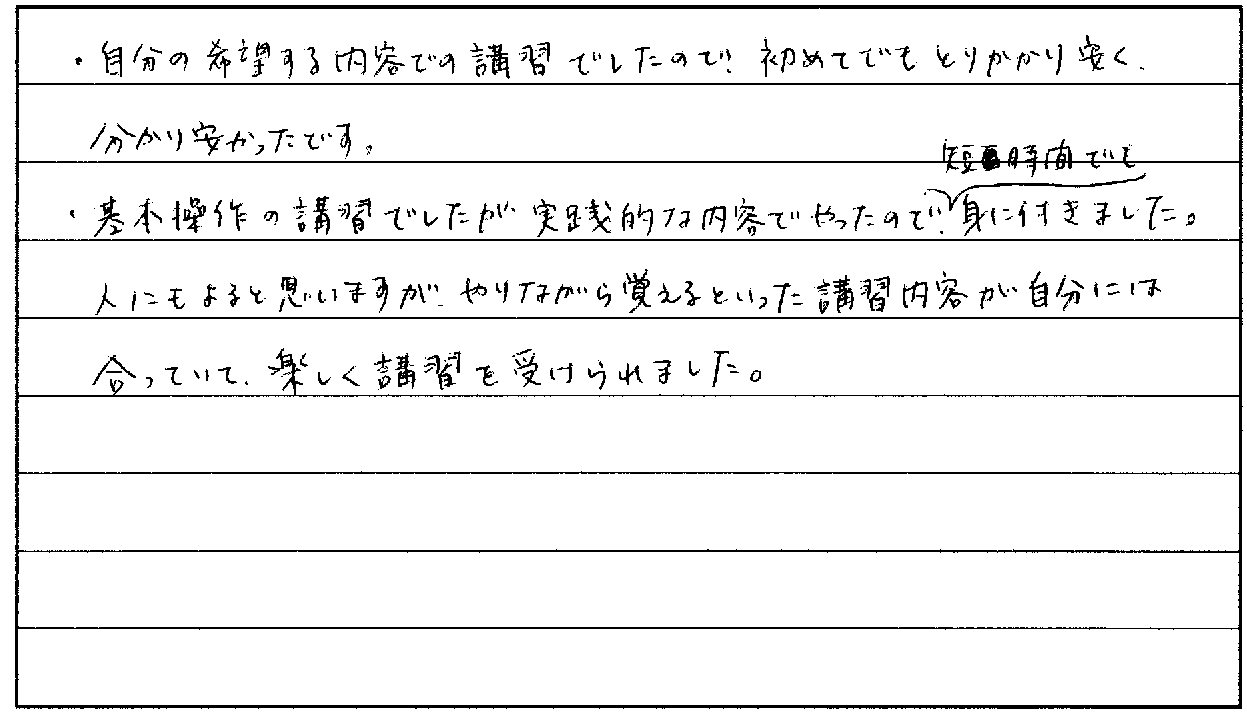 ・自分の希望する内容での講習でしたので、初めてでもとりかかり安く、
分かり安かったです。
・基本操作の講習でしたが実践的な内容でやったので、短時間でも身に付きました。
人にもよると思いますが、やりながら覚えるといった講習内容が自分には
合っていて、楽しく講習を受けられました。